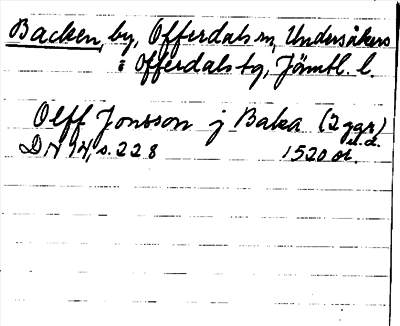 Backen, by, Offerdals sn, Undersåkers
i Offerdals tg, Jämtl. l.
Olff Jonsson j Baka (2 ggr)
u.d.
DN 14, s. 228 1520 ol